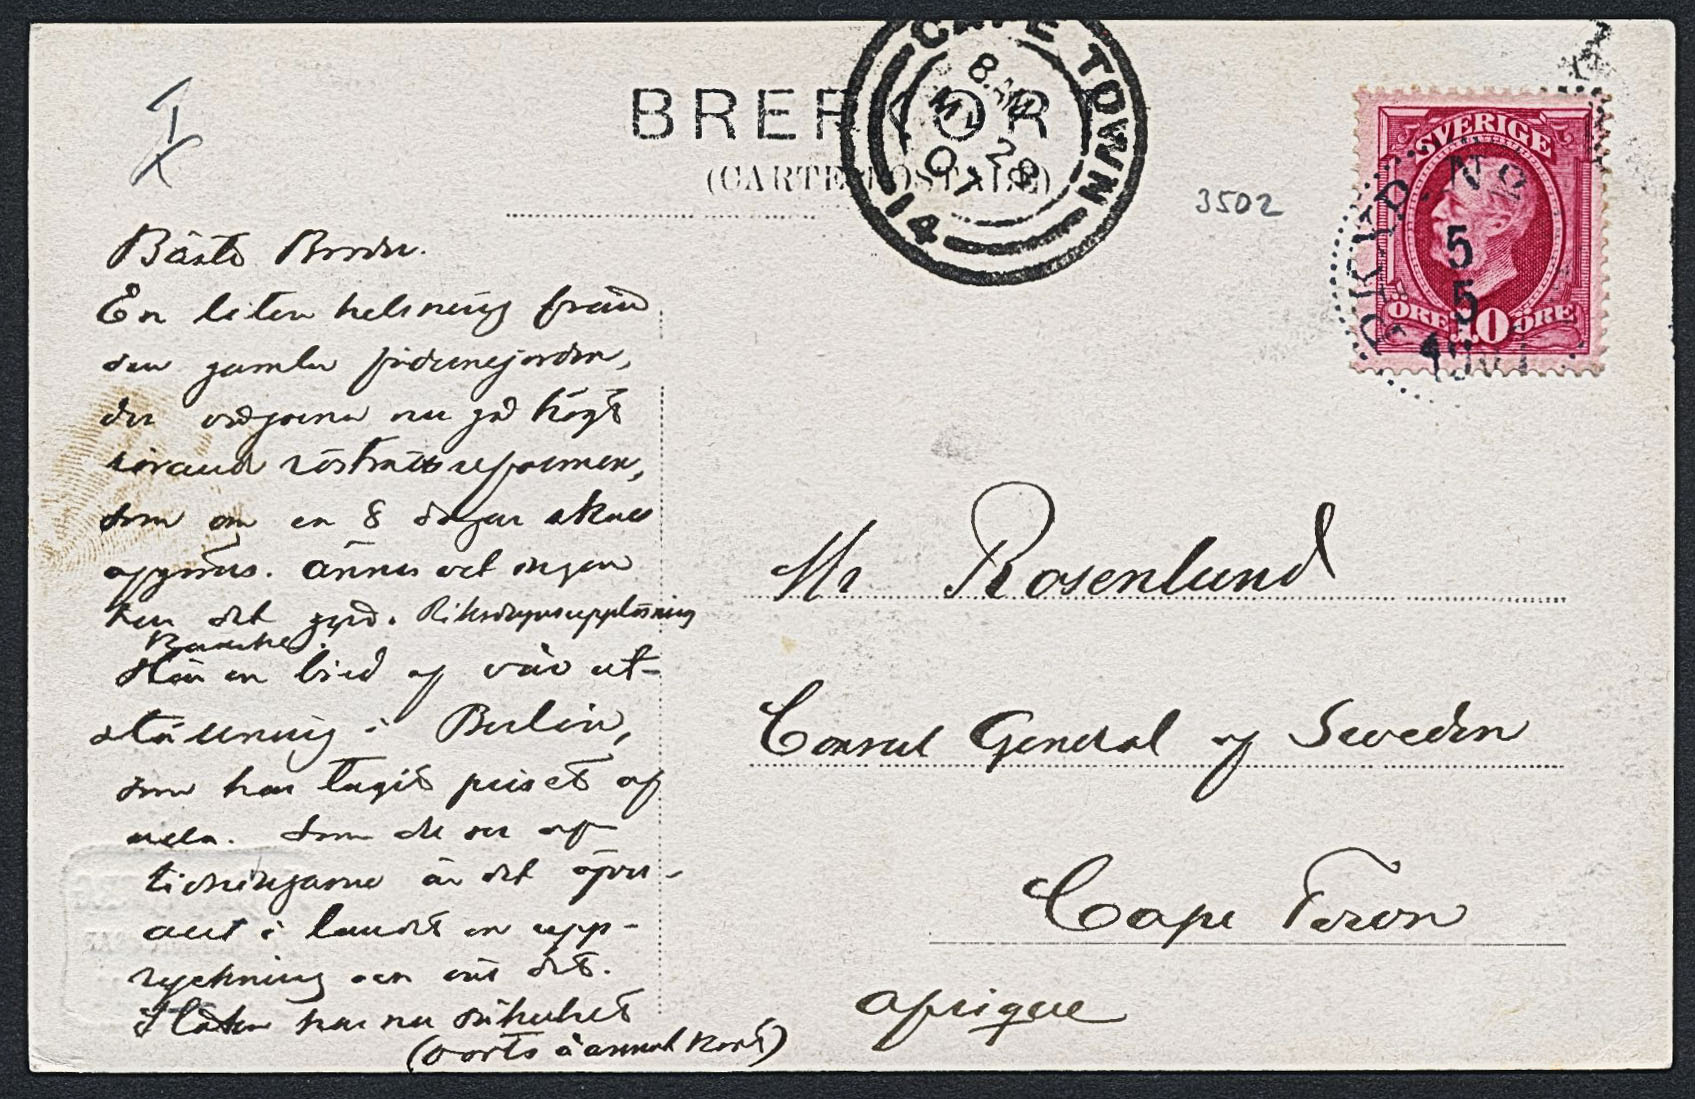 BREFKORT
(CARTE POSTALE)
CAPE TOWN
8 AM
MY 28
07
14
3502
SVERIGE
ÖRE 10 ÖRE
PKXP Nº 2
5
5
1907
I
Bäste Broder.
En liten helsning från
den gamla fädernejorden,
der vågorna nu gå högt
rörande rösträttsreformen,
som om en 8 dagar skall
afgöras. Ännu vet ingen
hur det går. Riksdagsupplösning
kanske.
Här en bild af vår ut-
ställning i Berlin,
som har tagit priset af
alla. Som du ser af
tidningarna är det öfver-
allt i landet en upp-
ryckning
det.
har nu
(forts å annat kort)
Mr Rosenlund
Consul General of Sweden
Cape Town
Afrique